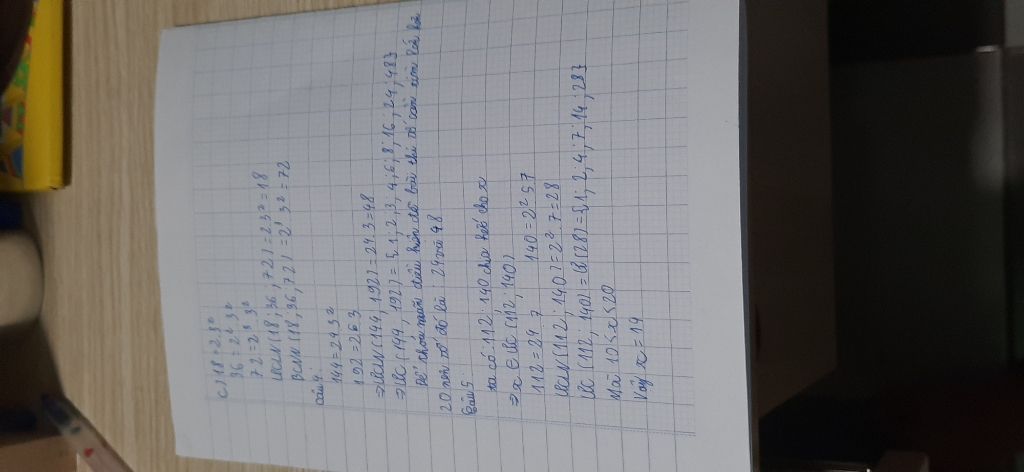 c) 18 = 2.3²
36 = 2² 3²
72 = 2³ 3²
ƯCLN (18; 36, 72) = 2 3² = 18
BCNN (18; 36, 72) = 2³ 3² = 72
câu 4:
144 = 2⁴ 3²
192 = 2⁶ 3
⇒ ƯCLN (144, 192) = 2⁴.3 = 48
⇒ ƯC (144, 192) = {1, 2, 3, 4, 6; 8, 16; 24; 48}
Để thỏa mãn điều kiện đề bài thì số cần tìm lớn
20 nên số đó là: 24 và 48
Câu 5:
ta có: 112; 140 chia hết cho x
⇒ x ∈ ƯC (112; 140)
112 = 2⁴ 7 140 = 2² 5 7
ƯCLN (112; 140) = 2².7 = 28
ƯC (112; 140) = Ư(28) = {1; 2; 4; 7; 14; 28}
Mà 10 < x < 20
Vậy x = 14